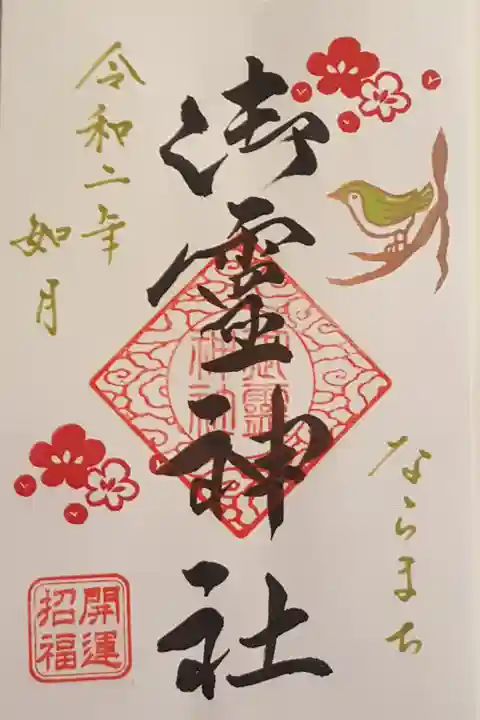 ならまち
御霊神社
令和二年
如月
御霊
神社
開運
招福